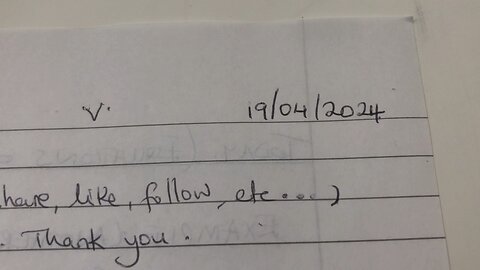 V. 19/04/2024
have, like, follow, etc....)
. Thank you.